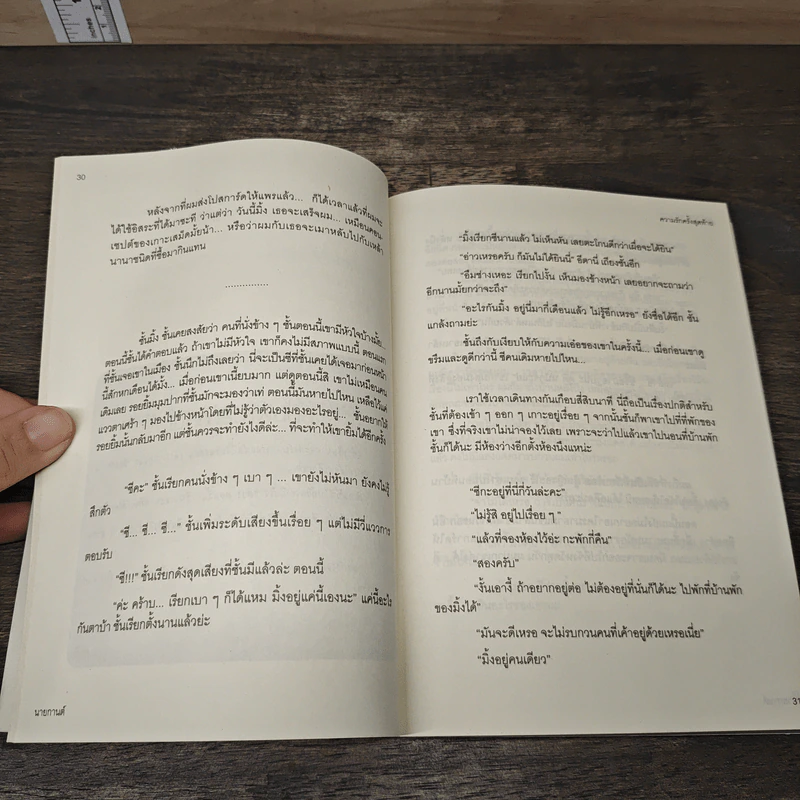 inches
1
2
30
หลังจากที่ผมส่งโปสการ์ดให้แพรแล้ว... ก็ได้เวลาแล้วที่ผมจะ
ได้ใช้อิสระที่ได้มาซะที ว่าแต่ว่า วันนี้มิ้ง เธอจะเสร็จผม... เหมือนคอน
เซปต์ของเกาะเสม็ดมั้ยน้า... หรือว่าผมกับเธอจะเมาหลับไปกับเหล้า
นานาชนิดที่ซื้อมากินแทน
...............
ชั้นมิ้ง ชั้นเคยสงสัยว่า คนที่นั่งข้าง ๆ ชั้นตอนนี้เขามีหัวใจบ้างมั้ย...
ตอนนี้ชั้นได้คำตอบแล้ว ถ้าเขาไม่มีหัวใจ เขาก็คงไม่มีสภาพแบบนี้ ตอนแรก
ที่ชั้นเจอเขาในเมือง ชั้นนึกไม่ถึงเลยว่า นี่จะเป็นซีที่ชั้นเคยได้เจอมาก่อนหน้า
นี้สักหกเดือนได้มั้ง... เมื่อก่อนเขาเนี้ยบมาก แต่ดูตอนนี้สิ เขาไม่เหมือนคน
เดิมเลย รอยยิ้มมุมปากที่ชั้นมักจะมองว่าเท่ ตอนนี้มันหายไปไหน เหลือไว้แค่
แววตาเศร้า ๆ มองไปข้างหน้าโดยที่ไม่รู้ว่าตัวเองมองอะไรอยู่... ชั้นอยากให้
รอยยิ้มนั้นกลับมาอีก แต่ชั้นควรจะทำยังไงดีล่ะ... ที่จะทำให้เขายิ้มได้อีกครั้ง
“ซีคะ” ชั้นเรียกคนนั่งข้าง ๆ เบา ๆ ... เขายังไม่หันมา ยังคงไม่รู้
สึกตัว
“ซี... ซี... ซี...” ชั้นเพิ่มระดับเสียงขึ้นเรื่อย ๆ แต่ไม่มีวี่แววการ
ตอบรับ
“ซี!!!” ชั้นเรียกดังสุดเสียงที่ชั้นมีแล้วล่ะ ตอนนี้
“ค่ะ คร้าบ... เรียกเบา ๆ ก็ได้แหม มิ้งอยู่แค่นี้เองนะ” แค่นี้อะไร
กันตาบ้า ชั้นเรียกตั้งนานแล้วย่ะ
นายกานต์
ความรักครั้งสุดท้าย
“มิ้งเรียกซีนานแล้ว ไม่เห็นหัน เลยตะโกนดีกว่าเผื่อจะได้ยิน”
“อ่าวเหรอครับ ก็มันไม่ได้ยินนี่” อีตานี่ เถียงชั้นอีก
“อืมช่างเหอะ เรียกไปงั้น เห็นมองข้างหน้า เลยอยากจะถามว่า
อีกนานมั้ยกว่าจะถึง”
“อะไรกันมิ้ง อยู่นี่มากี่เดือนแล้ว ไม่รู้อีกเหรอ” ยังซื่อได้อีก ชั้น
แกล้งถามย่ะ
ชั้นถึงกับเงียบให้กับความเอ๋อของเขาในครั้งนี้... เมื่อก่อนเขาดู
ขรึมและดูดีกว่านี้ ซีคนเดิมหายไปไหน...
เราใช้เวลาเดินทางกันเกือบสี่สิบนาที นี่ถือเป็นเรื่องปกติสำหรับ
ชั้นที่ต้องเข้า ๆ ออก ๆ เกาะอยู่เรื่อย ๆ จากนั้นชั้นก็พาเขาไปที่ที่พักของ
เขา ซึ่งที่จริงเขาไม่น่าจองไว้เลย เพราะจะว่าไปแล้วเขาไปนอนที่บ้านพัก
ชั้นก็ได้นะ มีห้องว่างอีกตั้งห้องนึงแหน่ะ
“ซีกะอยู่ที่นี่กี่วันล่ะคะ”
“ไม่รู้สิ อยู่ไปเรื่อย ๆ ”
“แล้วที่จองห้องไว้อ่ะ กะพักกี่คืน”
“สองครับ”
“งั้นเอางี้ ถ้าอยากอยู่ต่อ ไม่ต้องอยู่ที่นั่นก็ได้นะ ไปพักที่บ้านพัก
ของมิ้งได้”
“มันจะดีเหรอ จะไม่รบกวนคนที่เค้าอยู่ด้วยเหรอเนี่ย”
“มิ้งอยู่คนเดียว”
31